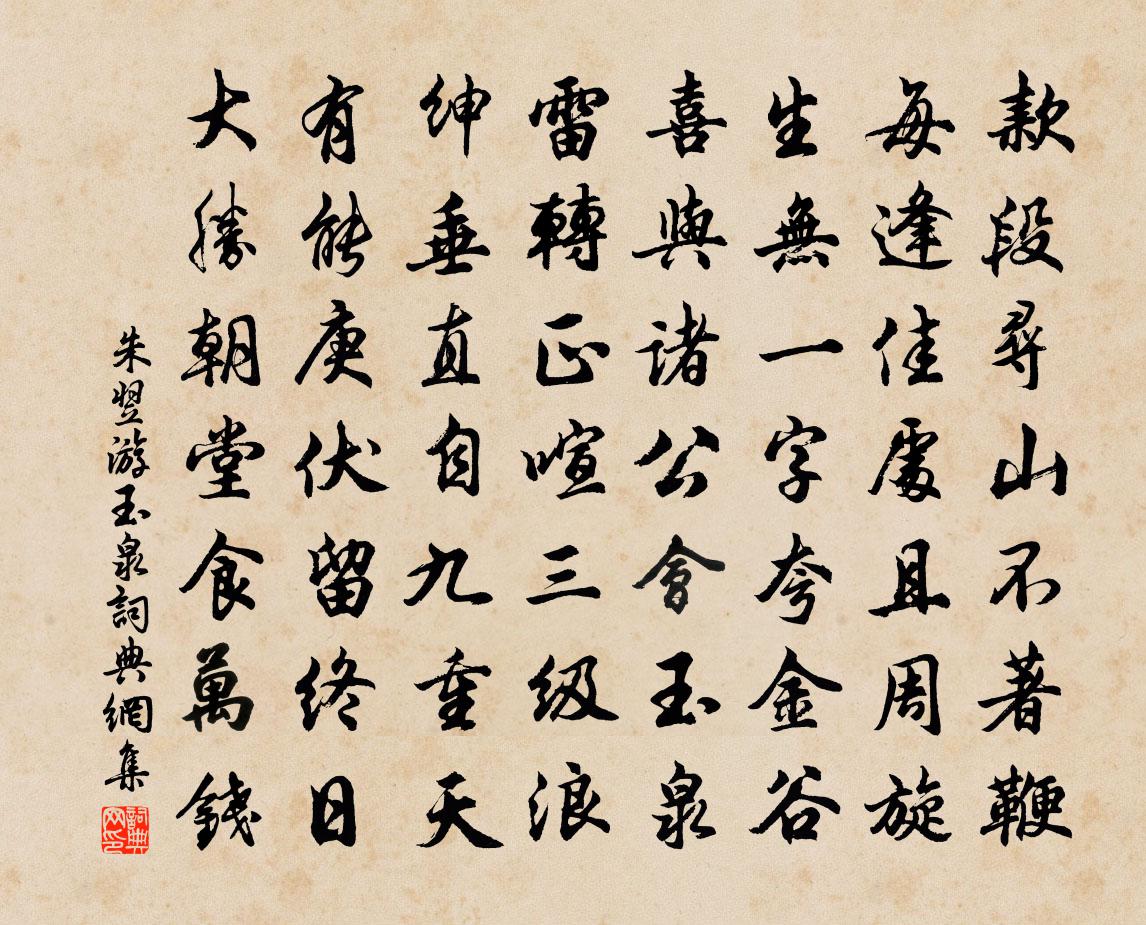 款段尋山不著鞭
每逢佳處且周旋
生無一字夸金谷
喜與諸公會玉泉
雷轉正喧三级浪
紳垂直自九重天
有能庚伏留终日
大勝朝堂食萬錢
朱翌游玉泉詞典網集
詞典网印